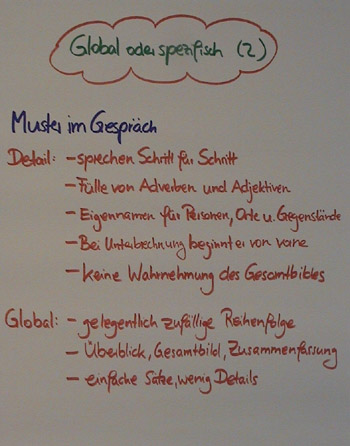 Global oder spezifisch (2)
Muster im Gespräch
Detail: - sprechen Schritt für Schritt
- Fülle von Adverben und Adjektiven
- Eigennamen für Personen, Orte u. Gegenstände
- Bei Unterbrechnung beginnt er von vorne
- keine Wahrnehmung des Gesamtbildes
Global: - gelegentlich zufällige Reihenfolge
- Überblick, Gesamtbild, Zusammenfassung
- einfache Sätze, wenig Details